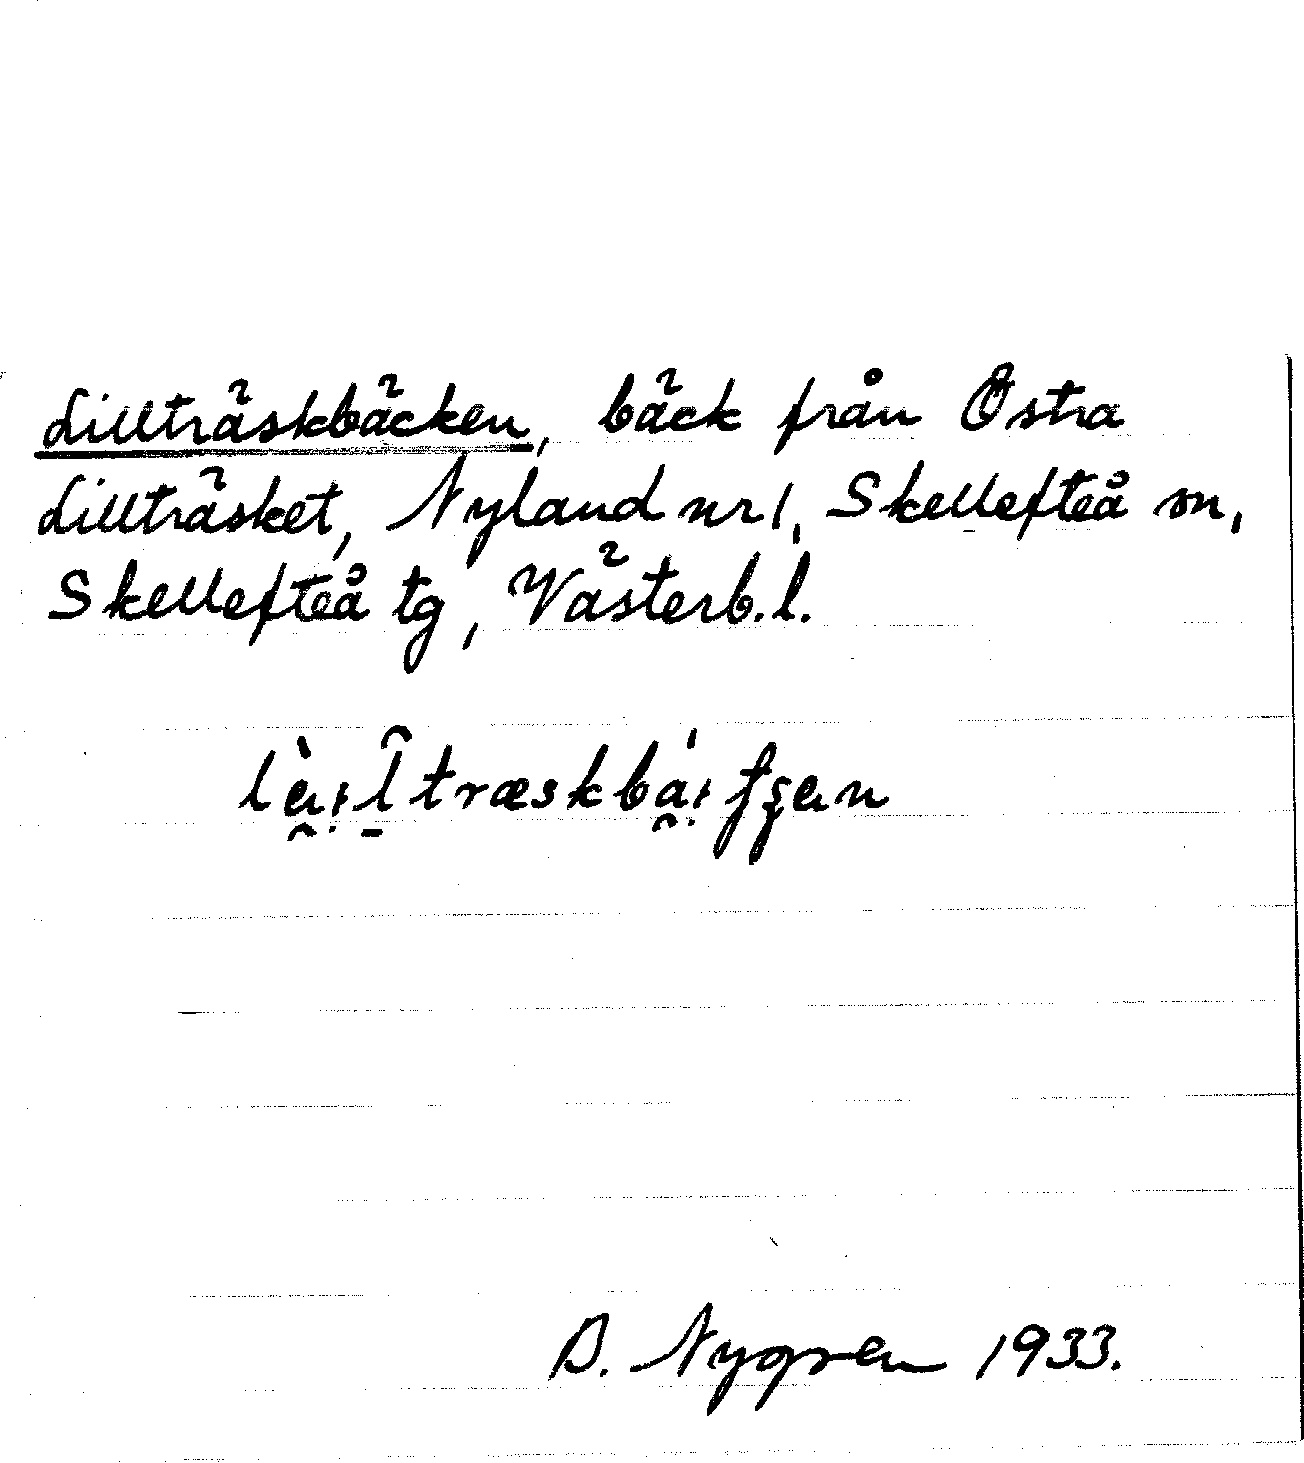 Lillträskbäcken, bäck från Östra
Lillträsket, Nyland nr 1, Skellefteå sn,
Skellefteå tg, Västerb. l.
B. Nygren 1933.